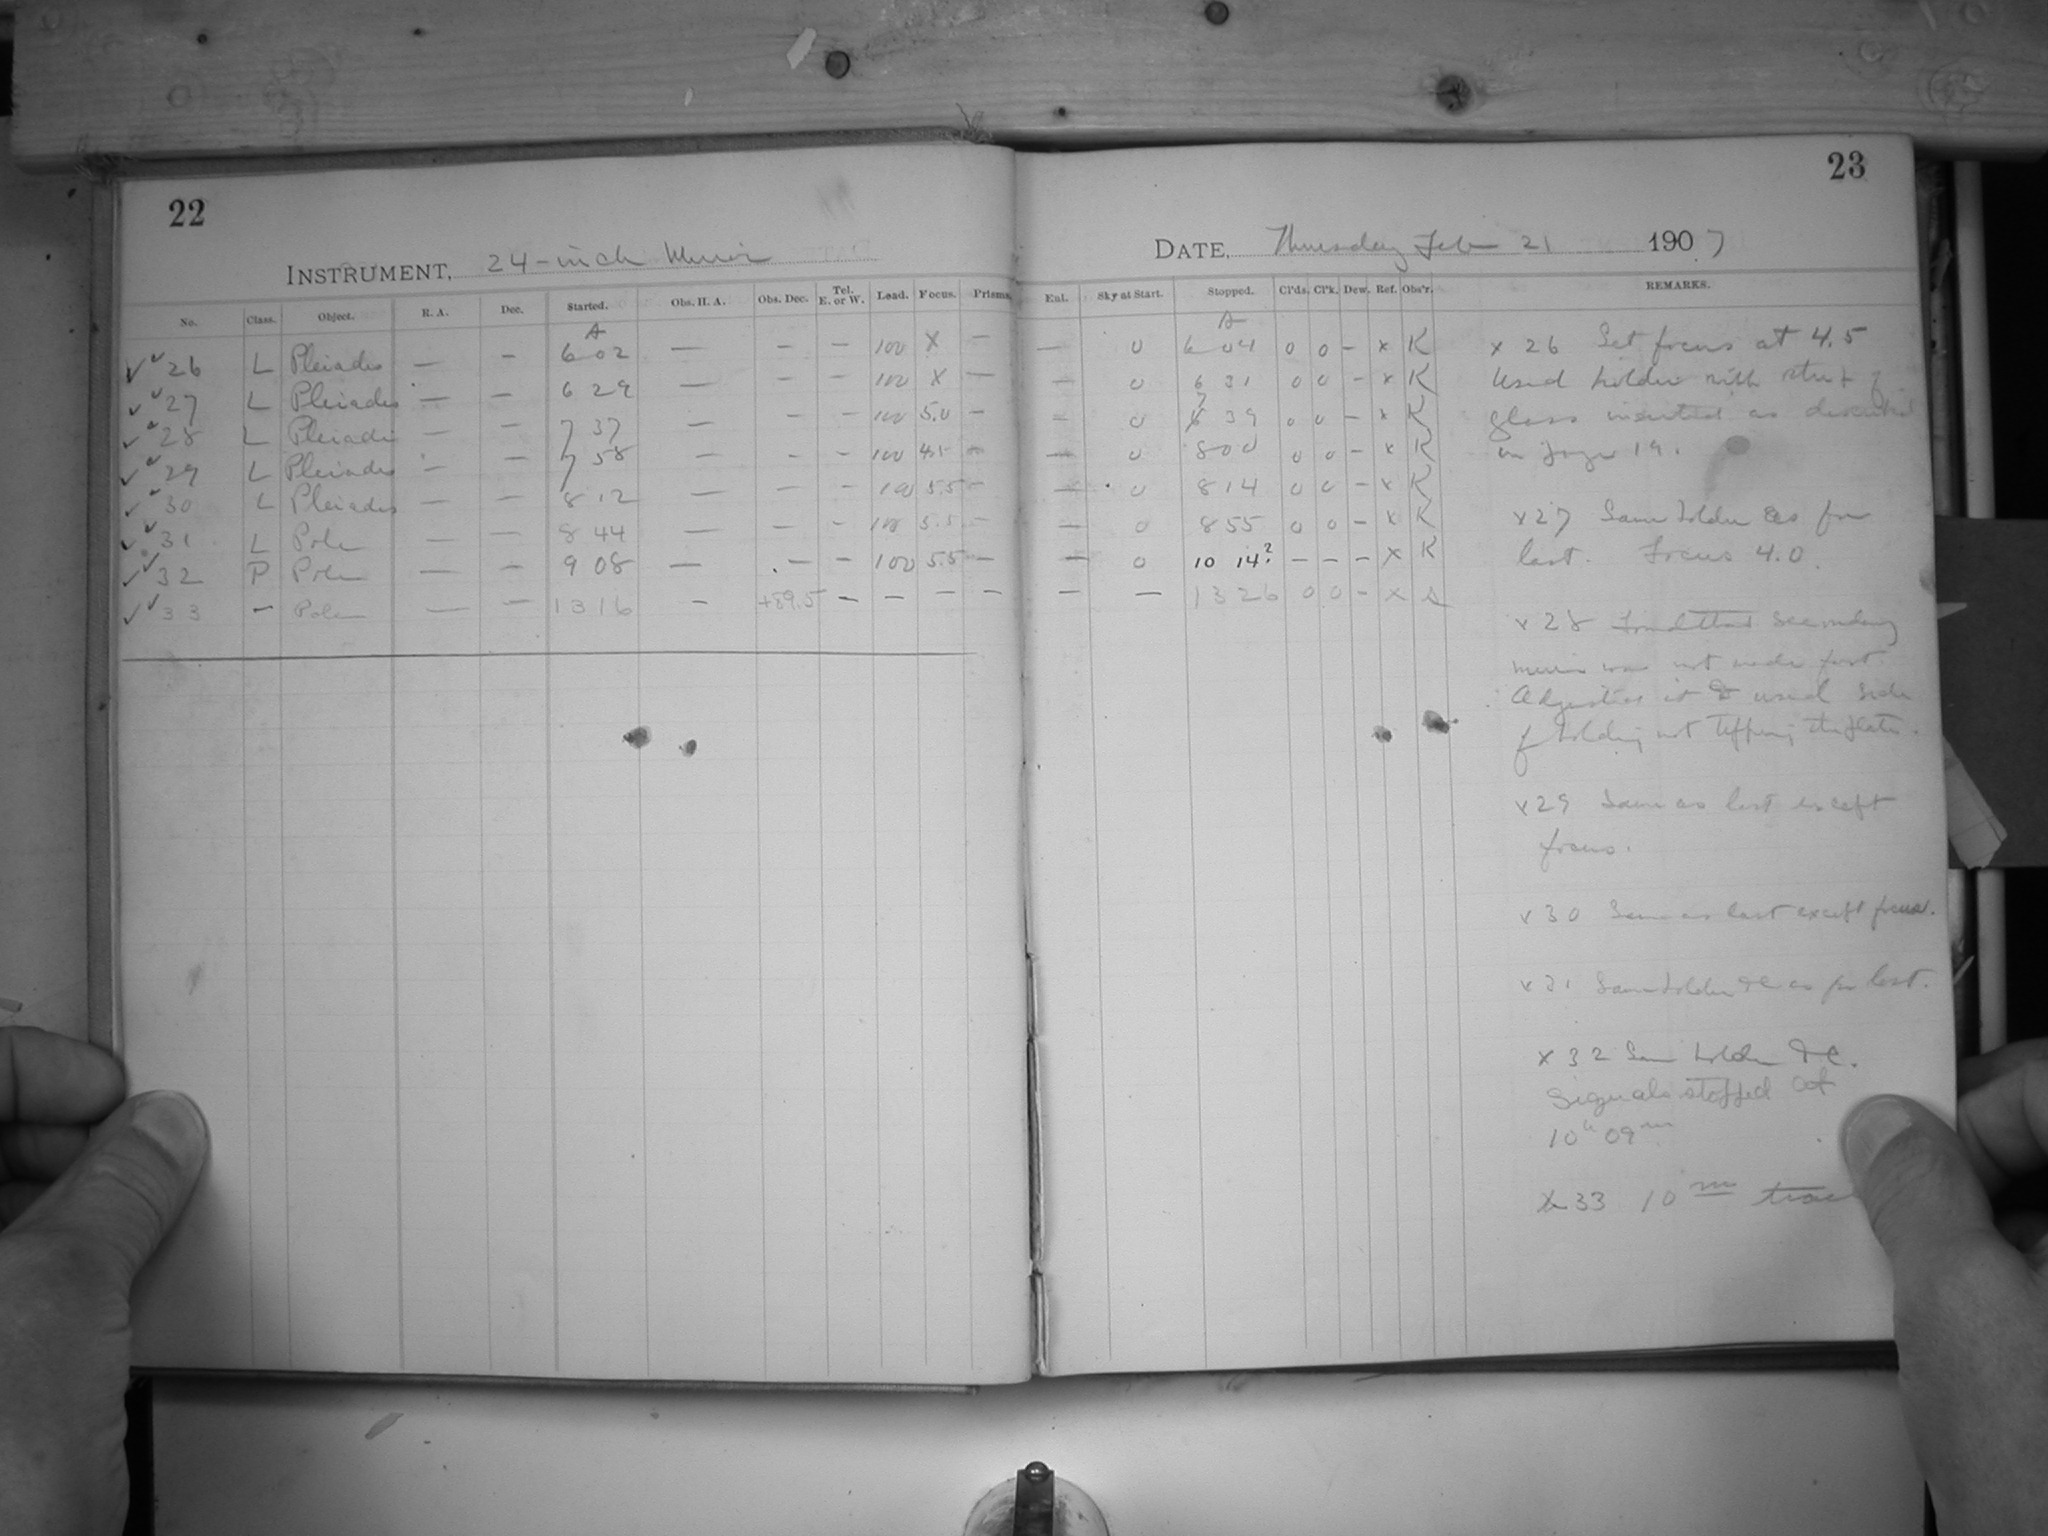 22
INSTRUMENT, 24-inch Mirror
No. Class. Object. R. A. Dec. Started. Obs. H. A. Obs. Dec. Tel. E. or W. Load. Focus. Prisms.
A
26 L Pleiades — — 6 02 — — — 100 X —
27 L Pleiades — — 6 29 — — — 100 X —
28 L Pleiades — — 7 37 — — — 100 5.0 —
29 L Pleiades — — 7 58 — — — 100 4.5 —
30 L Pleiades — — 8 12 — — — 100 5.5 —
31 L Pole — — 8 44 — — — 100 5.5 —
32 P Pole — — 9 08 — — — 100 5.5 —
33 — Pole — — 13 16 — +89.5 — — — —
23
DATE, Thursday Feb 21 1907
Enl. Sky at Start. Stopped. Cl'ds. Cl'k. Dew. Ref. Obs'r. REMARKS.
A
— 0 6 04 0 0 — x K
— 0 6 31 0 0 — x K
— 0 7 39 0 0 — x K
— 0 8 00 0 0 — x K
— 0 8 14 0 0 — x K
— 0 8 55 0 0 — x K
— 0 10 14? — — — x K
— — 13 26 0 0 — x
x 26 Set focus at 4.5
Used holder with strip of
glass inserted as described
on page 19.
x 27 Same holder &c as for
last. Focus 4.0.
x 28 Found that secondary
mirror was not made fast.
Adjusted it & used side
of holding not tipping the plate.
x 29 Same as last except
focus.
x 30 Same as last except focus.
x 31 Same holder &c as for last.
x 32 Same holder &c.
Signals stopped at
10h 09m
x 33 10m